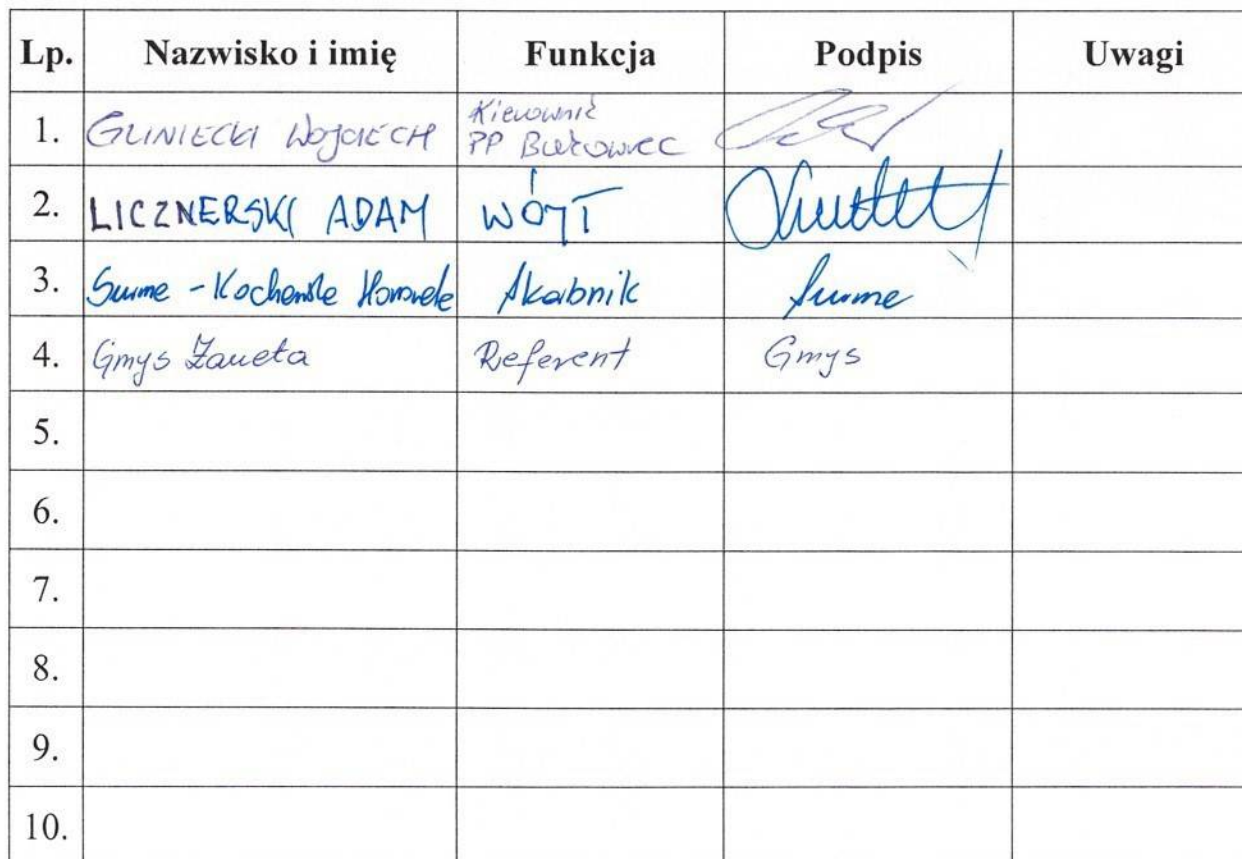 Lp. Nazwisko i imię Funkcja Podpis Uwagi
1. GLINIECKI WOJCIECH Kierownik
PP Bukowiec
2. LICZNERSKI ADAM WÓJT
3. Surma - Kochańska Skarbnik Surma
4. Gmys Żaneta Referent Gmys
5.
6.
7.
8.
9.
10.